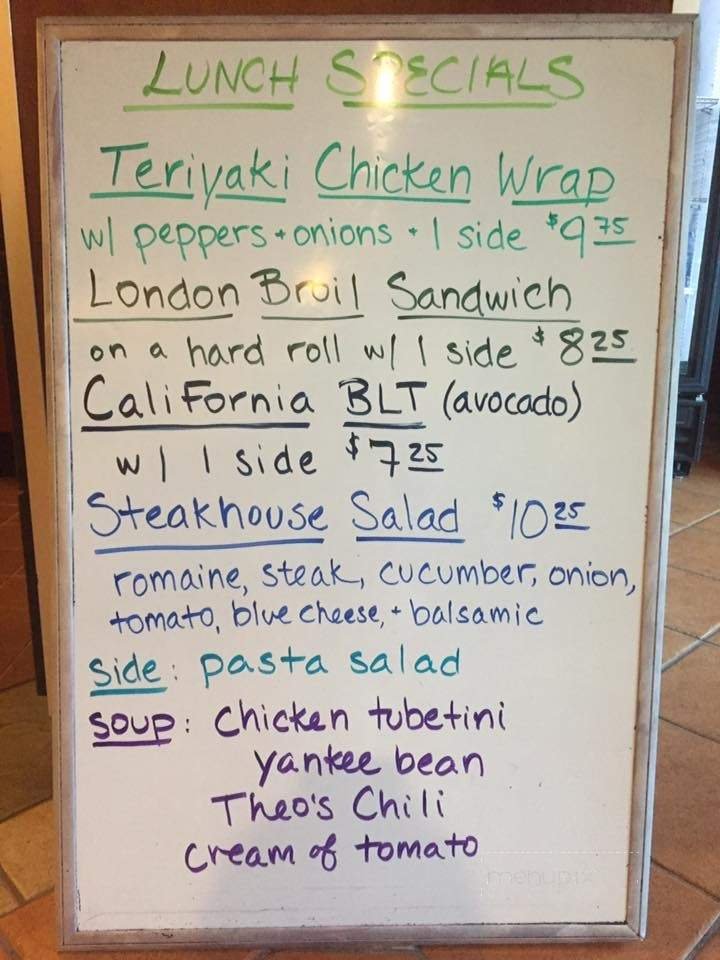 LUNCH SPECIALS
Teriyaki Chicken Wrap
w/ peppers + onions + 1 side $9.75
London Broil Sandwich
on a hard roll w/ 1 side $8.25
California BLT (avocado)
w/ 1 side $7.25
Steakhouse Salad $10.25
romaine, steak, cucumber, onion,
tomato, blue cheese, + balsamic
Side: pasta salad
Soup: Chicken tubetini
yankee bean
Theo's Chili
Cream of tomato
menupix